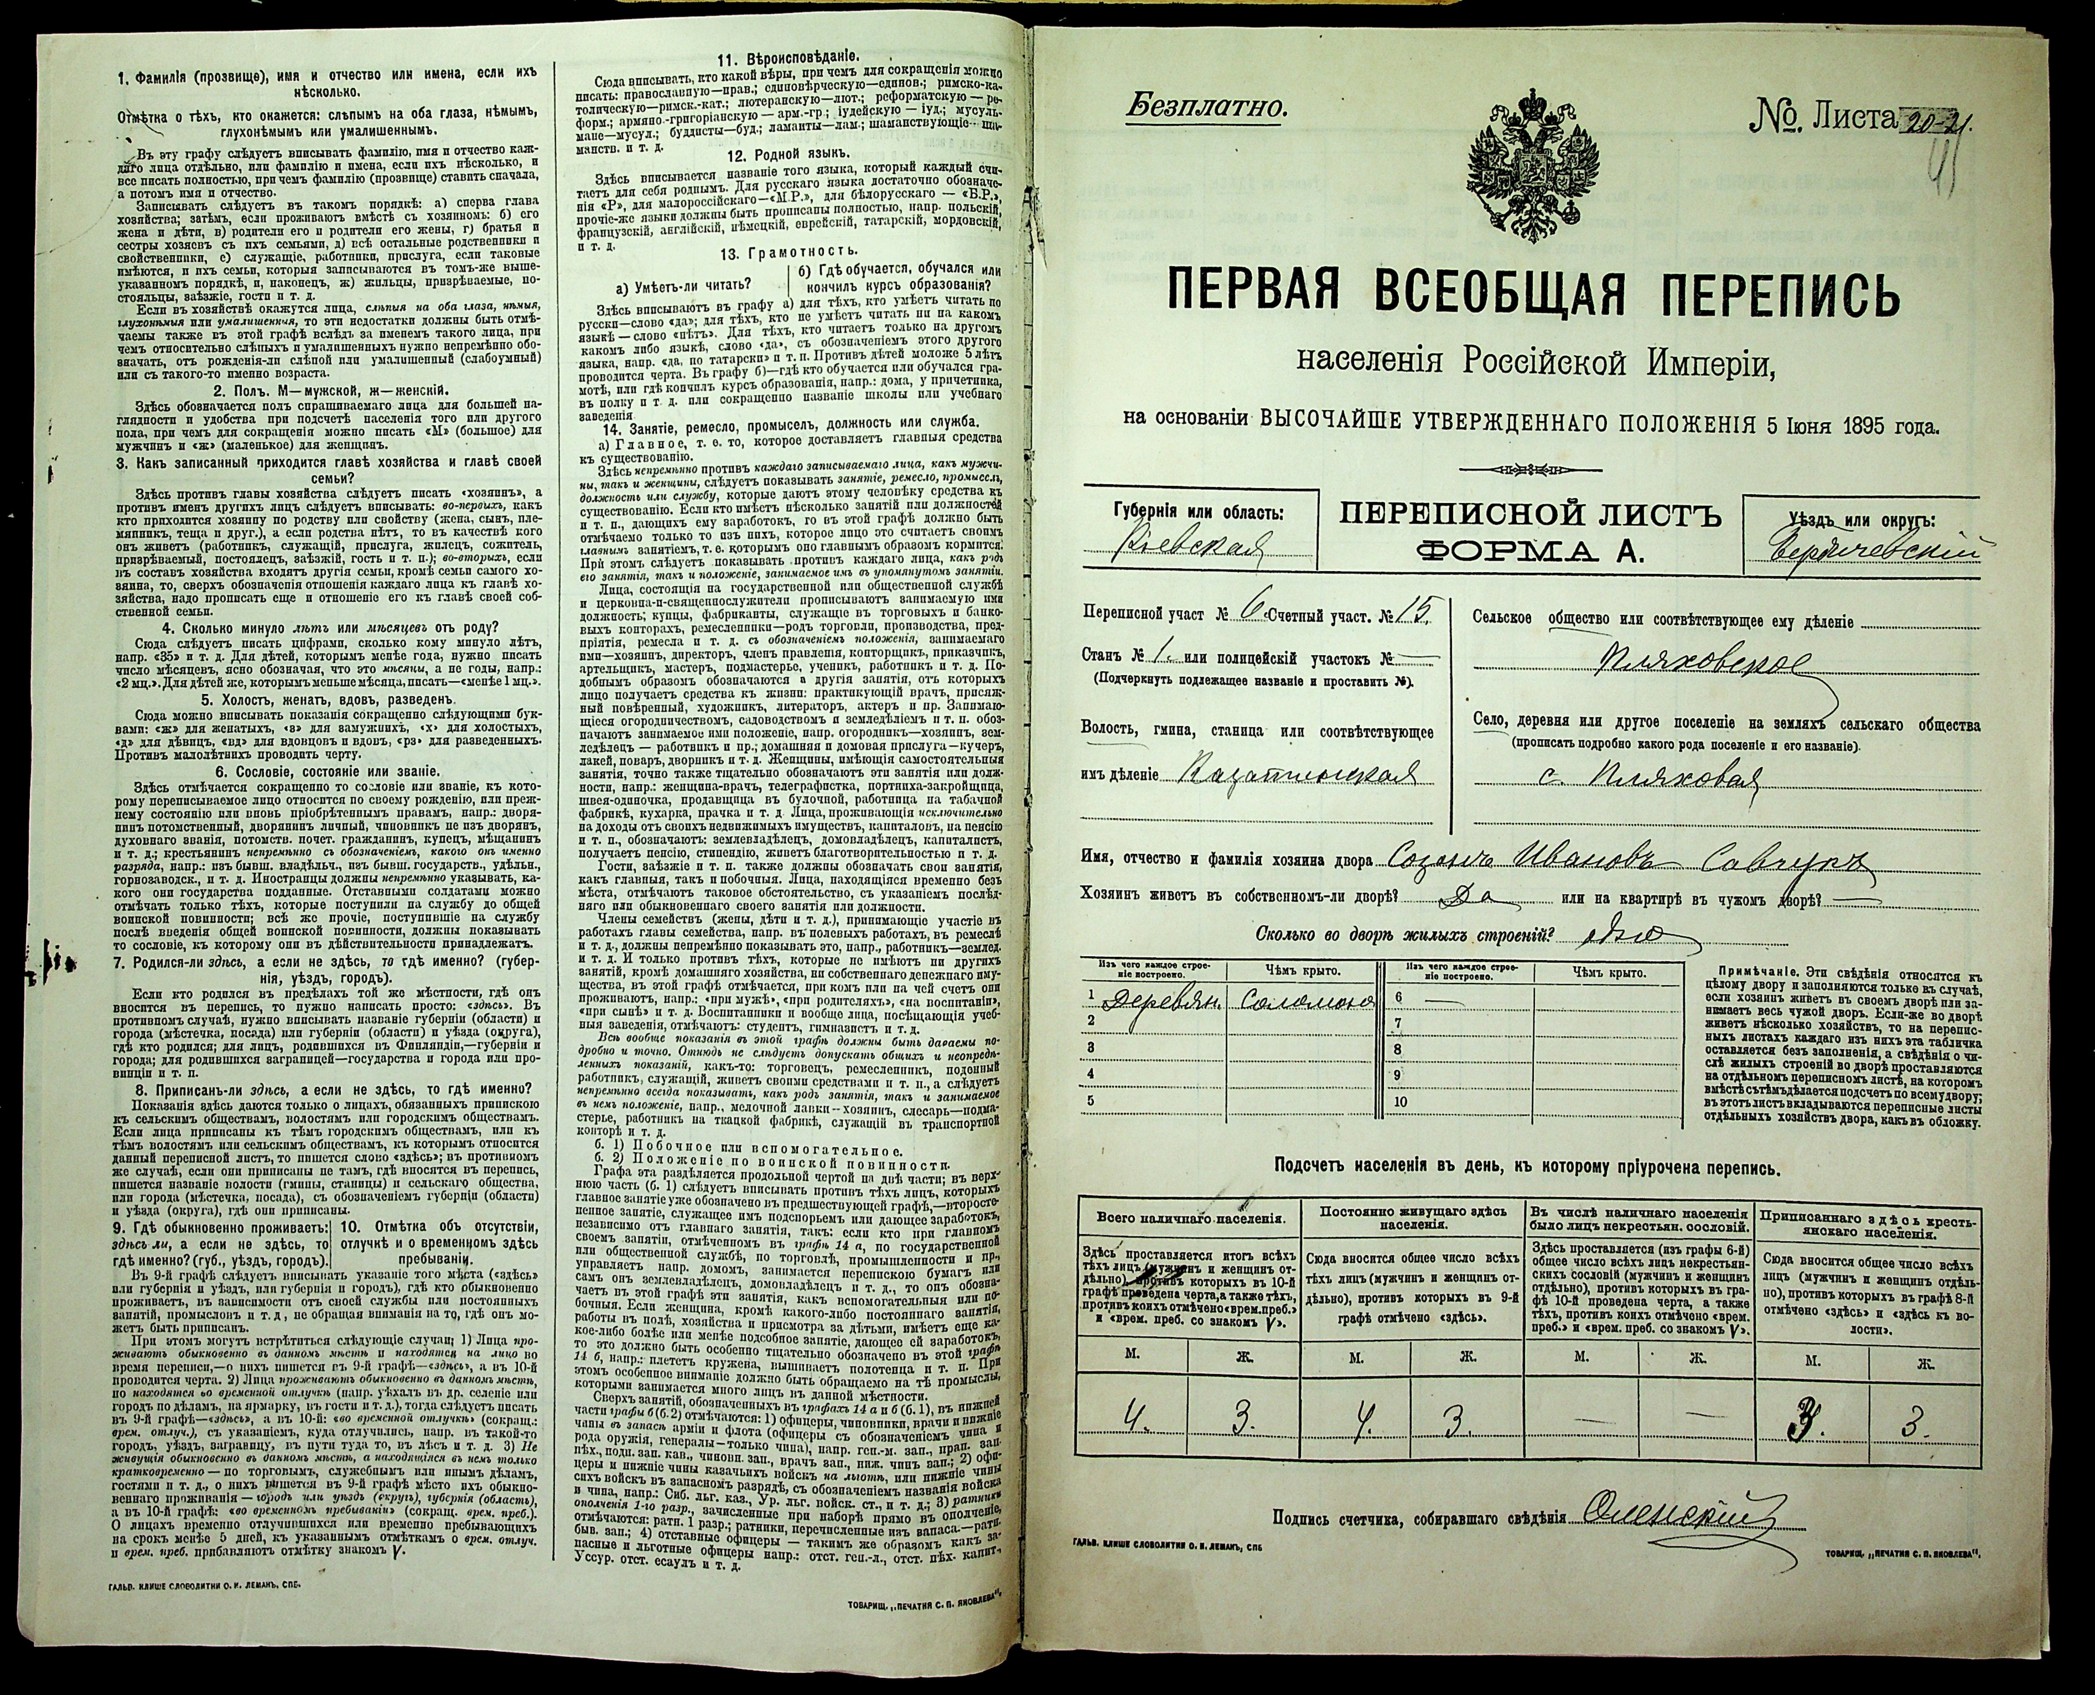 1. Фамилія (прозвище), имя и отчество или имена, если ихъ
нѣсколько.
Отмѣтка о тѣхъ, кто окажется: слѣпымъ на оба глаза, нѣмымъ,
глухонѣмымъ или умалишеннымъ.
Въ эту графу слѣдуетъ вписывать фамилію, имя и отчество каж-
даго лица отдѣльно, или фамилію и имена, если ихъ нѣсколько, и
все писать полностью, при чемъ фамилію (прозвище) ставить сначала,
а потомъ имя и отчество.
Записывать слѣдуетъ въ такомъ порядкѣ: а) сперва глава
хозяйства; затѣмъ, если проживаютъ вмѣстѣ съ хозяиномъ: б) его
жена и дѣти, в) родители его и родители его жены, г) братья и
сестры хозяевъ съ ихъ семьями, д) всѣ остальные родственники и
свойственники, е) служащіе, работники, прислуга, если таковые
имѣются, и ихъ семьи, которыя записываются въ томъ-же выше-
указанномъ порядкѣ, и, наконецъ, ж) жильцы, призрѣваемые, по-
стояльцы, заѣзжіе, гости и т. п.
Если въ хозяйствѣ окажутся лица, слѣпыя на оба глаза, нѣмыя,
глухонѣмыя или умалишенныя, то эти недостатки должны быть отмѣ-
чаемы также въ этой графѣ вслѣдъ за именемъ такого лица, при
чемъ относительно слѣпыхъ и умалишенныхъ нужно непремѣнно обо-
значать, отъ рожденія-ли слѣпой или умалишенный (слабоумный)
или съ такого-то именно возраста.
2. Полъ. М—мужской, ж—женскій.
Здѣсь обозначается полъ спрашиваемаго лица для большей на-
глядности и удобства при подсчетѣ населенія того или другого
пола, при чемъ для сокращенія можно писать «М» (большое) для
мужчинъ и «ж» (маленькое) для женщинъ.
3. Какъ записанный приходится главѣ хозяйства и главѣ своей
семьи?
Здѣсь противъ главы хозяйства слѣдуетъ писать «хозяинъ», а
противъ именъ другихъ лицъ слѣдуетъ вписывать: во-первыхъ, какъ
кто приходится хозяину по родству или свойству (жена, сынъ, пле-
мянникъ, теща и друг.), а если родства нѣтъ, то въ качествѣ кого
онъ живетъ (работникъ, служащій, прислуга, жилецъ, сожитель,
призрѣваемый, постоялецъ, заѣзжій, гость и т. п.); во-вторыхъ, если
въ составъ хозяйства входятъ другія семьи, кромѣ семьи самого хо-
зяина, то, сверхъ обозначенія отношенія каждаго лица къ главѣ хо-
зяйства, надо прописать еще и отношеніе его къ главѣ своей соб-
ственной семьи.
4. Сколько минуло лѣтъ или мѣсяцевъ отъ роду?
Сюда слѣдуетъ писать цифрами, сколько кому минуло лѣтъ,
напр. «35» и т. д. Для дѣтей, которымъ менѣе года, нужно писать
число мѣсяцевъ, ясно обозначая, что это мѣсяцы, а не годы, напр.:
«2 мц.». Для дѣтей же, которымъ меньше мѣсяца, писать—«менѣе 1 мц.».
5. Холостъ, женатъ, вдовъ, разведенъ.
Сюда можно вписывать показанія сокращенно слѣдующими бук-
вами: «ж» для женатыхъ, «з» для замужнихъ, «х» для холостыхъ,
«д» для дѣвицъ, «вд» для вдовцовъ и вдовъ, «рз» для разведенныхъ.
Противъ малолѣтнихъ проводить черту.
6. Сословіе, состояніе или званіе.
Здѣсь отмѣчается сокращенно то сословіе или званіе, къ кото-
рому переписываемое лицо относится по своему рожденію, или преж-
нему состоянію или вновь пріобрѣтеннымъ правамъ, напр.: дворя-
нинъ потомственный, дворянинъ личный, чиновникъ не изъ дворянъ,
духовнаго званія, потомств. почет. гражданинъ, купецъ, мѣщанинъ
и т. д.; крестьянинъ непремѣнно съ обозначеніемъ, какого онъ именно
разряда, напр.: изъ бывш. владѣльч., изъ бывш. государств., удѣльн.,
горнозаводск., и т. д. Иностранцы должны непремѣнно указывать, ка-
кого они государства подданные. Отставными солдатами можно
отмѣчать только тѣхъ, которые поступили на службу до общей
воинской повинности; всѣ же прочіе, поступившіе на службу
послѣ введенія общей воинской повинности, должны показывать
то сословіе, къ которому они въ дѣйствительности принадлежатъ.
7. Родился-ли здѣсь, а если не здѣсь, то гдѣ именно? (губер-
нія, уѣздъ, городъ).
Если кто родился въ предѣлахъ той же мѣстности, гдѣ онъ
вносится въ перепись, то нужно написать просто: «здѣсь». Въ
противномъ случаѣ, нужно вписывать названіе губерніи (области) и
города (мѣстечка, посада) или губерніи (области) и уѣзда (округа),
гдѣ кто родился; для лицъ, родившихся въ Финляндіи,—губерніи и
города; для родившихся заграницей—государства и города или про-
винціи и т. п.
8. Приписанъ-ли здѣсь, а если не здѣсь, то гдѣ именно?
Показанія здѣсь даются только о лицахъ, обязанныхъ припискою
къ сельскимъ обществамъ, волостямъ или городскимъ обществамъ.
Если лица приписаны къ тѣмъ городскимъ обществамъ, или къ
тѣмъ волостямъ или сельскимъ обществамъ, къ которымъ относится
данный переписной листъ, то пишется слово «здѣсь»; въ противномъ
же случаѣ, если они приписаны не тамъ, гдѣ вносятся въ перепись,
пишется названіе волости (гмины, станицы) и сельскаго общества,
или города (мѣстечка, посада), съ обозначеніемъ губерніи (области)
и уѣзда (округа), гдѣ они приписаны.
9. Гдѣ обыкновенно проживаетъ:
здѣсь-ли, а если не здѣсь, то
гдѣ именно? (губ., уѣздъ, городъ).
10. Отмѣтка объ отсутствіи,
отлучкѣ и о временномъ здѣсь
пребываніи.
Въ 9-й графѣ слѣдуетъ вписывать указаніе того мѣста («здѣсь»
или губернія и уѣздъ, или губернія и городъ), гдѣ кто обыкновенно
проживаетъ, въ зависимости отъ своей службы или постоянныхъ
занятій, промысловъ и т. д., не обращая вниманія на то, гдѣ онъ мо-
жетъ быть приписанъ.
При этомъ могутъ встрѣтиться слѣдующіе случаи: 1) Лица про-
живаютъ обыкновенно въ данномъ мѣстѣ и находятся на лицо во
время переписи,—о нихъ пишется въ 9-й графѣ—«здѣсь», а въ 10-й
проводится черта. 2) Лица проживаютъ обыкновенно въ данномъ мѣстѣ,
но находятся во временной отлучкѣ (напр. уѣхалъ въ др. селеніе или
городъ по дѣламъ, на ярмарку, въ гости и т. д.), тогда слѣдуетъ писать
въ 9-й графѣ—«здѣсь», а въ 10-й: «во временной отлучкѣ» (сокращ.:
врем. отлуч.), съ указаніемъ, куда отлучились, напр. въ такой-то
городъ, уѣздъ, заграницу, въ пути туда то, въ лѣсъ и т. д. 3) Не
живущія обыкновенно въ данномъ мѣстѣ, а находящіяся въ немъ только
кратковременно — по торговымъ, служебнымъ или инымъ дѣламъ,
гостями и т. д., о нихъ пишется въ 9-й графѣ мѣсто ихъ обыкно-
веннаго проживанія — городъ или уѣздъ (округъ), губернія (область),
а въ 10-й графѣ: «во временномъ пребываніи» (сокращ. врем. преб.).
О лицахъ временно отлучившихся или временно пребывающихъ
на срокъ менѣе 5 дней, къ указаннымъ отмѣткамъ о врем. отлуч.
и врем. преб. прибавляютъ отмѣтку знакомъ V.
ГАЛЬВ. КЛИШЕ СЛОВОЛИТНИ О. И. ЛЕМАНЪ, СПБ.
11. Вѣроисповѣданіе.
Сюда вписывать, кто какой вѣры, при чемъ для сокращенія можно
писать: православную—прав.; единовѣрческую—единов.; римско-ка-
толическую—римск.-кат.; лютеранскую—лют.; реформатскую — ре-
форм.; армяно-григоріанскую — арм.-гр.; іудейскую — іуд.; мусуль-
мане—мусул.; буддисты—буд.; ламаиты—лам.; шаманствующіе—ша-
манств. и т. д.
12. Родной языкъ.
Здѣсь вписывается названіе того языка, который каждый счи-
таетъ для себя роднымъ. Для русскаго языка достаточно обозначе-
нія «Р», для малороссійскаго—«М.Р.», для бѣлорусскаго — «Б.Р.»,
прочіе-же языки должны быть прописаны полностью, напр. польскій,
французскій, англійскій, нѣмецкій, еврейскій, татарскій, мордовскій,
и т. д.
13. Грамотность.
а) Умѣетъ-ли читать?
б) Гдѣ обучается, обучался или
кончилъ курсъ образованія?
Здѣсь вписываютъ въ графу а) для тѣхъ, кто умѣетъ читать по
русски—слово «да»; для тѣхъ, кто не умѣетъ читать ни на какомъ
языкѣ — слово «нѣтъ». Для тѣхъ, кто читаетъ только на другомъ
какомъ либо языкѣ, слово «да», съ обозначеніемъ этого другого
языка, напр. «да, по татарски» и т. п. Противъ дѣтей моложе 5 лѣтъ
проводится черта. Въ графу б)—гдѣ кто обучается или обучался гра-
мотѣ, или гдѣ кончилъ курсъ образованія, напр.: дома, у причетника,
въ полку и т. д. или сокращенно названіе школы или учебнаго
заведенія.
14. Занятіе, ремесло, промыселъ, должность или служба.
а) Главное, т. е. то, которое доставляетъ главныя средства
къ существованію.
Здѣсь непремѣнно противъ каждаго записываемаго лица, какъ мужчи-
ны, такъ и женщины, слѣдуетъ показывать занятіе, ремесло, промыселъ,
должность или службу, которые даютъ этому человѣку средства къ
существованію. Если кто имѣетъ нѣсколько занятій или должностей
и т. п., дающихъ ему заработокъ, то въ этой графѣ должно быть
отмѣчаемо только то изъ нихъ, которое лицо это считаетъ своимъ
главнымъ занятіемъ, т. е. которымъ оно главнымъ образомъ кормится.
При этомъ слѣдуетъ показывать противъ каждаго лица, какъ родъ
его занятія, такъ и положеніе, занимаемое имъ въ упомянутомъ занятіи.
Лица, состоящія на государственной или общественной службѣ
и церковно-и-священнослужители прописываютъ занимаемую ими
должность; купцы, фабриканты, служащіе въ торговыхъ и банко-
выхъ конторахъ, ремесленники—родъ торговли, производства, пред-
пріятія, ремесла и т. д. съ обозначеніемъ положенія, занимаемаго
ими—хозяинъ, директоръ, членъ правленія, конторщикъ, приказчикъ,
артельщикъ, мастеръ, подмастерье, ученикъ, работникъ и т. д. По-
добнымъ образомъ обозначаются и другія занятія, отъ которыхъ
лицо получаетъ средства къ жизни: практикующій врачъ, присяж-
ный повѣренный, художникъ, литераторъ, актеръ и пр. Занимаю-
щіеся огородничествомъ, садоводствомъ и земледѣліемъ и т. п. обоз-
начаютъ занимаемое ими положеніе, напр. огородникъ—хозяинъ, зем-
ледѣлецъ — работникъ и пр.; домашняя и домовая прислуга—кучеръ,
лакей, поваръ, дворникъ и т. д. Женщины, имѣющія самостоятельныя
занятія, точно также тщательно обозначаютъ эти занятія или долж-
ности, напр.: женщина-врачъ, телеграфистка, портниха-закройщица,
швея-одиночка, продавщица въ булочной, работница на табачной
фабрикѣ, кухарка, прачка и т. д. Лица, проживающія исключительно
на доходы отъ своихъ недвижимыхъ имуществъ, капиталовъ, на пенсію
и т. п., обозначаютъ: землевладѣлецъ, домовладѣлецъ, капиталистъ,
получаетъ пенсію, стипендію, живетъ благотворительностью и т. д.
Гости, заѣзжіе и т. п. также должны обозначать свои занятія,
какъ главныя, такъ и побочныя. Лица, находящіяся временно безъ
мѣста, отмѣчаютъ таковое обстоятельство, съ указаніемъ послѣд-
няго или обыкновеннаго своего занятія или должности.
Члены семействъ (жены, дѣти и т. д.), принимающіе участіе въ
работахъ главы семейства, напр. въ полевыхъ работахъ, въ ремеслѣ
и т. д., должны непремѣнно показывать это, напр., работникъ—землед.
и т. д. И только противъ тѣхъ, которые не имѣютъ ни другихъ
занятій, кромѣ домашняго хозяйства, ни собственнаго денежнаго иму-
щества, въ этой графѣ отмѣчается, при комъ или на чей счетъ они
проживаютъ, напр.: «при мужѣ», «при родителяхъ», «на воспитаніи»,
«при сынѣ» и т. д. Воспитанники и вообще лица, посѣщающія учеб-
ныя заведенія, отмѣчаютъ: студентъ, гимназистъ и т. д.
Всѣ вообще показанія въ этой графѣ должны быть даваемы по-
дробно и точно. Отнюдь не слѣдуетъ допускать общихъ и неопредѣ-
ленныхъ показаній, какъ-то: торговецъ, ремесленникъ, поденный
работникъ, служащій, живетъ своими средствами и т. п., а слѣдуетъ
непремѣнно всегда показывать, какъ родъ занятія, такъ и занимаемое
въ немъ положеніе, напр., мелочной лавки—хозяинъ, слесарь—подма-
стерье, работникъ на ткацкой фабрикѣ, служащій въ транспортной
конторѣ и т. д.
б. 1) Побочное или вспомогательное.
б. 2) Положеніе по воинской повинности.
Графа эта раздѣляется продольной чертой на двѣ части; въ верх-
нюю часть (б. 1) слѣдуетъ вписывать противъ тѣхъ лицъ, которыхъ
главное занятіе уже обозначено въ предшествующей графѣ,—второсте-
пенное занятіе, служащее имъ подспорьемъ или дающее заработокъ,
независимо отъ главнаго занятія, такъ: если кто при главномъ
своемъ занятіи, отмѣченномъ въ графѣ 14 а, по государственной
или общественной службѣ, по торговлѣ, промышленности и пр.,
управляетъ напр. домомъ, занимается перепискою бумагъ или
самъ онъ землевладѣлецъ, домовладѣлецъ и т. д., то онъ обозна-
чаетъ въ этой графѣ эти занятія, какъ вспомогательныя или по-
бочныя. Если женщина, кромѣ какого-либо постояннаго занятія,
работы въ полѣ, хозяйства и присмотра за дѣтьми, имѣетъ еще ка-
кое-либо болѣе или менѣе подсобное занятіе, дающее ей заработокъ,
то это должно быть особенно тщательно обозначено въ этой графѣ
14 б, напр.: плететъ кружева, вышиваетъ полотенца и т. п. При
этомъ особенное вниманіе должно быть обращаемо на тѣ промыслы,
которыми занимается много лицъ въ данной мѣстности.
Сверхъ занятій, обозначенныхъ въ графахъ 14 а и б (б. 1), въ нижней
части графы б (б. 2) отмѣчаются: 1) офицеры, чиновники, врачи и нижніе
чины въ запасѣ арміи и флота (офицеры съ обозначеніемъ чина и
рода оружія, генералы—только чина), напр. ген.-м. зап., прап. зап.
пѣх., подп. зап. кав., чиновн. зап., врачъ зап., ниж. чинъ зап.; 2) офи-
церы и нижніе чины казачьихъ войскъ на льготѣ, или нижніе чины
сихъ войскъ въ запасномъ разрядѣ, съ обозначеніемъ названія войска
и чина, напр.: Сиб. льг. каз., Ур. льг. войск. ст., и т. д.; 3) ратники
ополченія 1-го разр., зачисленные при наборѣ прямо въ ополченіе,
отмѣчаются: ратн. 1 разр.; ратники, перечисленные изъ запаса.—ратн.
быв. зап.; 4) отставные офицеры — такимъ же образомъ какъ за-
пасные и льготные офицеры напр.: отст. ген.-л., отст. пѣх. капит.,
Уссур. отст. есаулъ и т. д.
ТОВАРИЩ. „ПЕЧАТНЯ С. П. ЯКОВЛЕВА“.
Безплатно.
№. Листа 20-21.
ПЕРВАЯ ВСЕОБЩАЯ ПЕРЕПИСЬ
населенія Россійской Имперіи,
на основаніи ВЫСОЧАЙШЕ УТВЕРЖДЕННАГО ПОЛОЖЕНІЯ 5 Іюня 1895 года.
Губернія или область:
Кіевская
ПЕРЕПИСНОЙ ЛИСТЪ
ФОРМА А.
Уѣздъ или округъ:
Бердичевскій
Переписной участ № 6 Счетный участ. № 15.
Станъ № 1. или полицейскій участокъ № —
(Подчеркнуть подлежащее названіе и проставить №).
Волость, гмина, станица или соотвѣтствующее
имъ дѣленіе Казатинская
Сельское общество или соотвѣтствующее ему дѣленіе
Пляховское
Село, деревня или другое поселеніе на земляхъ сельскаго общества
(прописать подробно какого рода поселеніе и его названіе).
с. Пляховая
Имя, отчество и фамилія хозяина двора Созонъ Ивановъ Савчукъ
Хозяинъ живетъ въ собственномъ-ли дворѣ? Да или на квартирѣ въ чужомъ дворѣ? —
Сколько во дворѣ жилыхъ строеній?
Изъ чего каждое строе-
ніе построено.
Чѣмъ крыто.
Изъ чего каждое строе-
ніе построено.
Чѣмъ крыто.
1 Деревян. Соломою 6 —
2 7
3 8
4 9
5 10
Примѣчаніе. Эти свѣдѣнія относятся къ
цѣлому двору и заполняются только въ случаѣ,
если хозяинъ живетъ въ своемъ дворѣ или за-
нимаетъ весь чужой дворъ. Если-же во дворѣ
живетъ нѣсколько хозяйствъ, то на перепис-
ныхъ листахъ каждаго изъ нихъ эта табличка
оставляется безъ заполненія, а свѣдѣнія о чи-
слѣ жилыхъ строеній во дворѣ проставляются
на отдѣльномъ переписномъ листѣ, на которомъ
вмѣстѣ съ тѣмъ дѣлается подсчетъ по всему двору;
въ этотъ листъ вкладываются переписные листы
отдѣльныхъ хозяйствъ двора, какъ въ обложку.
Подсчетъ населенія въ день, къ которому пріурочена перепись.
Всего наличнаго населенія.
Здѣсь проставляется итогъ всѣхъ
тѣхъ лицъ (мужчинъ и женщинъ от-
дѣльно), противъ которыхъ въ 10-й
графѣ проведена черта, а также тѣхъ,
противъ коихъ отмѣчено «врем. преб.»
и «врем. преб. со знакомъ V».
Постоянно живущаго здѣсь
населенія.
Сюда вносится общее число всѣхъ
тѣхъ лицъ (мужчинъ и женщинъ от-
дѣльно), противъ которыхъ въ 9-й
графѣ отмѣчено «здѣсь».
Въ числѣ наличнаго населенія
было лицъ некрестьян. сословій.
Здѣсь проставляется (изъ графы 6-й)
общее число всѣхъ лицъ некрестьян-
скихъ сословій (мужчинъ и женщинъ
отдѣльно), противъ которыхъ въ гра-
фѣ 10-й проведена черта, а также
тѣхъ, противъ коихъ отмѣчено «врем.
преб.» и «врем. преб. со знакомъ V».
Приписаннаго здѣсь кресть-
янскаго населенія.
Сюда вносится общее число всѣхъ
лицъ (мужчинъ и женщинъ отдѣль-
но), противъ которыхъ въ графѣ 8-й
отмѣчено «здѣсь» и «здѣсь къ во-
лости».
М. Ж. М. Ж. М. Ж. М. Ж.
4. 3. 4. 3. — — 3. 3.
Подпись счетчика, собиравшаго свѣдѣнія Оленскій
ГАЛЬВ. КЛИШЕ СЛОВОЛИТНИ О. И. ЛЕМАНЪ, СПБ
ТОВАРИЩ. „ПЕЧАТНЯ С. П. ЯКОВЛЕВА“.